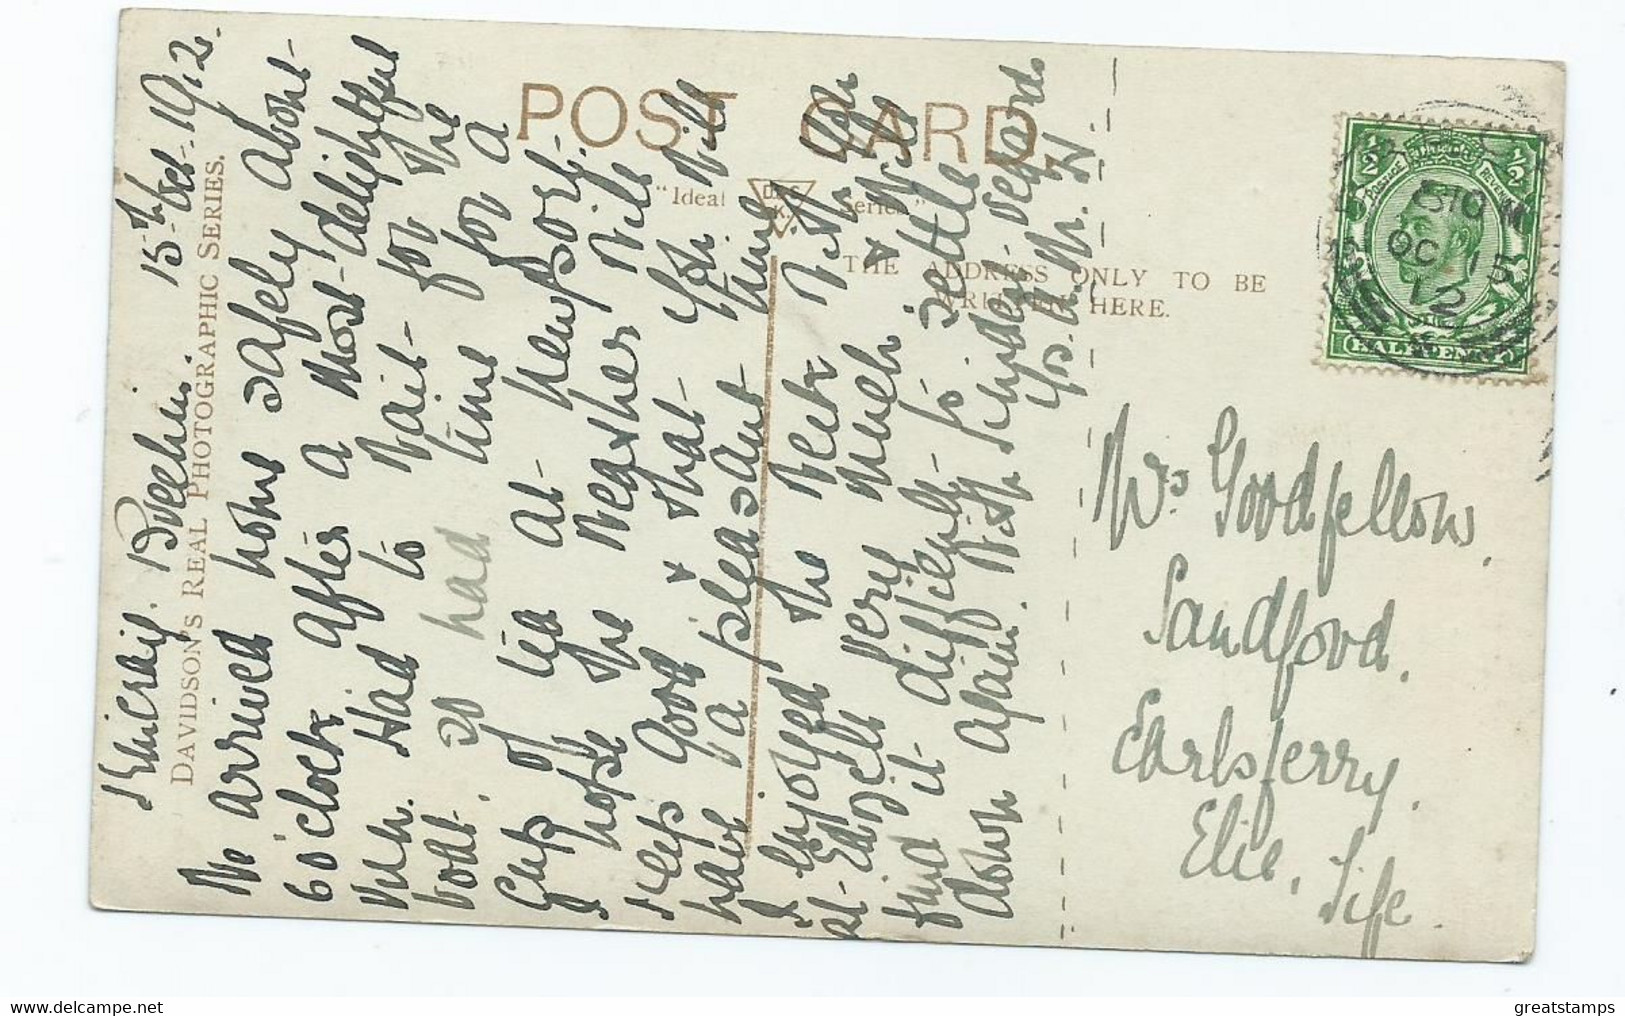 POST CARD
"Ideal Series."
D. & S. K.
THE ADDRESS ONLY TO BE
WRITTEN HERE.
DAVIDSON'S REAL PHOTOGRAPHIC SERIES.
Brechin. 15th Oct. 1912.
We arrived home safely about
6 o'clock after a most delightful
run. Had to wait for the
boat. so had time for a
cup of tea at Newport.
I hope the weather will
keep good & that you will
have a pleasant time
I enjoyed the week with you
at Edzell very much & will
find it difficult to settle
down again. With kindest regards
Yrs. M. H.
Mrs Goodfellow.
Sandford.
Earlsferry.
Elie. Fife.
½ ½
POSTAGE REVENUE
HALFPENNY
OC 15
12
greatstamps